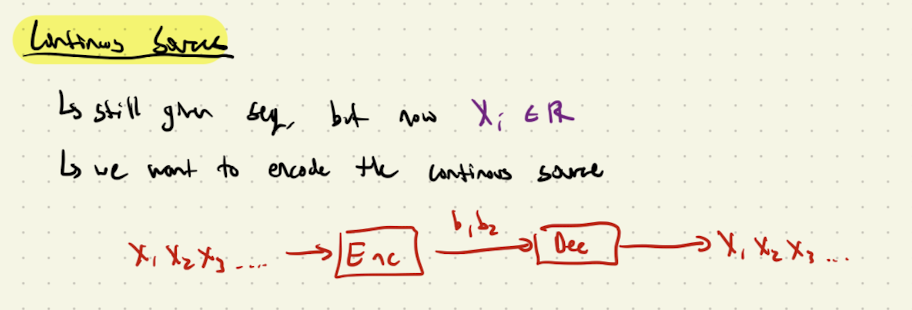 Continous Source
↳ still given seq, but now Xᵢ ∈ ℝ
↳ we want to encode the continous source
X₁ X₂ X₃ .... → Enc b₁b₂ → Dec → X₁ X₂ X₃ ...